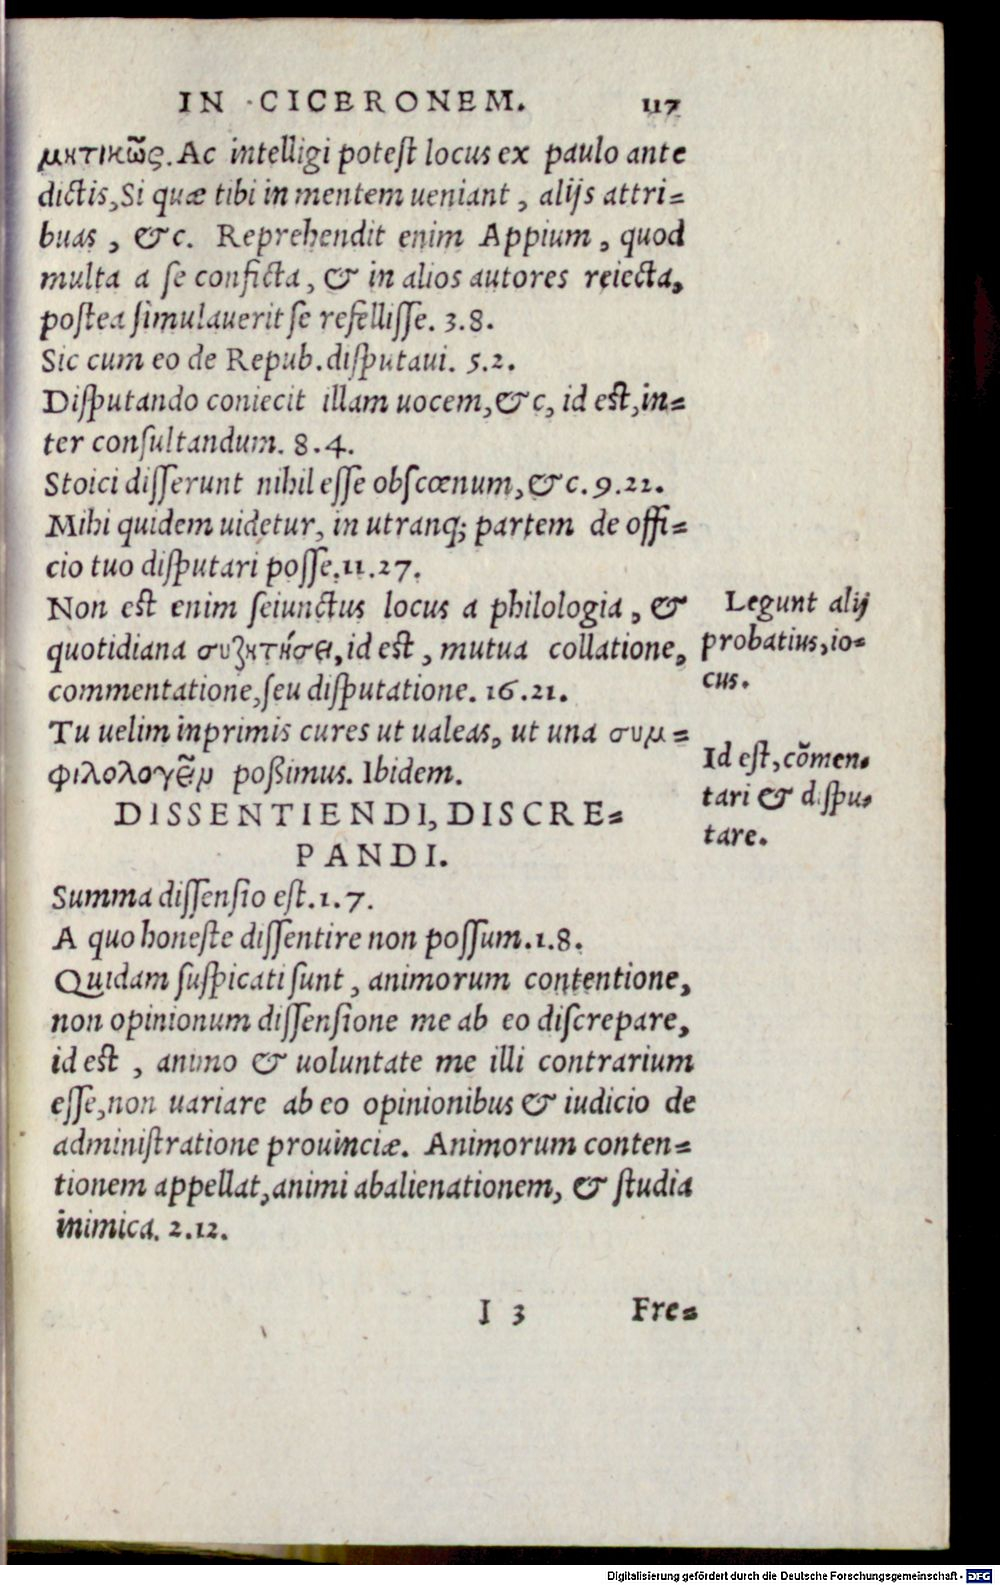 IN CICERONEM. 117
μητικῶς. Ac intelligi potest locus ex paulo ante
dictis, Si quæ tibi in mentem ueniant, alijs attri=
buas, &c. Reprehendit enim Appium, quod
multa a se conficta, & in alios autores reiecta,
postea simulauerit se refellisse. 3.8.
Sic cum eo de Repub. disputaui. 5.2.
Disputando coniecit illam uocem, &c, id est, in=
ter consultandum. 8.4.
Stoici disserunt nihil esse obscœnum, &c. 9.22.
Mihi quidem uidetur, in utranq; partem de offi=
cio tuo disputari posse. 11.27.
Non est enim seiunctus locus a philologia, &
quotidiana συζητήσει, id est, mutua collatione,
commentatione, seu disputatione. 16.21.
Tu uelim inprimis cures ut ualeas, ut una συμ=
φιλολογεῖν poßimus. Ibidem.
Legunt alij
probatius, io=
cus.
Id est, cõmen=
tari & dispu=
tare.
DISSENTIENDI, DISCRE=
PANDI.
Summa dissensio est. 1.7.
A quo honeste dissentire non possum. 1.8.
Quidam suspicati sunt, animorum contentione,
non opinionum dissensione me ab eo discrepare,
id est, animo & uoluntate me illi contrarium
esse, non uariare ab eo opinionibus & iudicio de
administratione prouinciæ. Animorum conten=
tionem appellat, animi abalienationem, & studia
inimica. 2.12.
I 3 Fre=
Digitalisierung gefördert durch die Deutsche Forschungsgemeinschaft - DFG